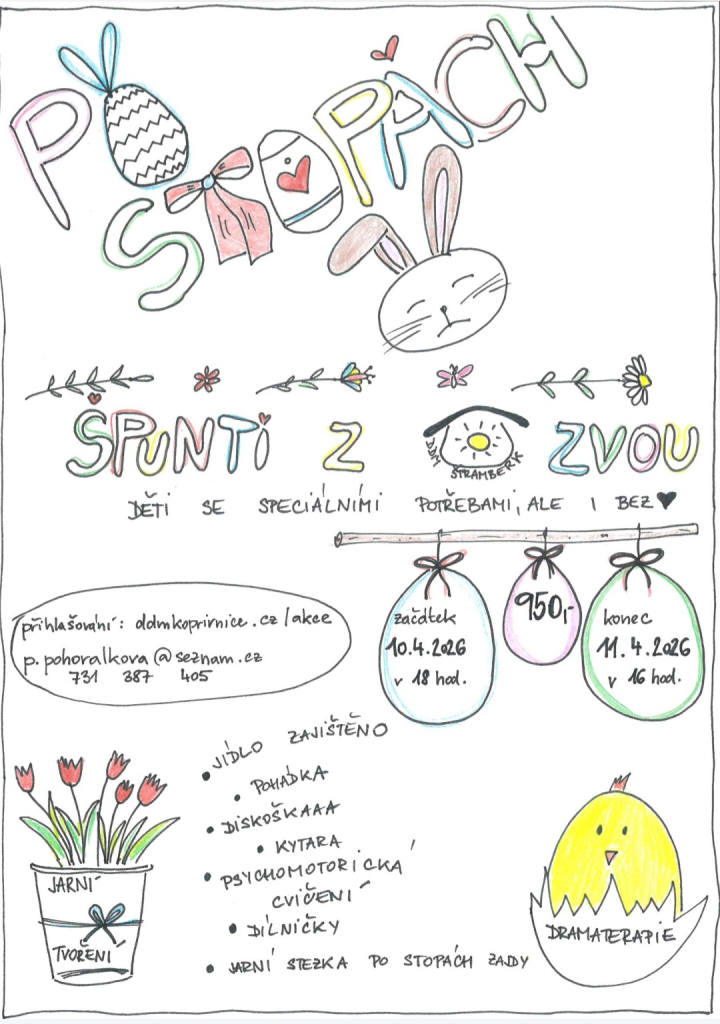 PO STOPÁCH
ŠPUNTI Z DDM ŠTRAMBERK ZVOU
DĚTI SE SPECIÁLNÍMI POTŘEBAMI, ALE I BEZ
začátek
10.4.2026
v 18 hod.
950,-
konec
11.4.2026
v 16 hod.
přihlašování: ddmkoprivnice.cz/akce
p.pohoralkova@seznam.cz
731 387 405
• JÍDLO ZAJIŠTĚNO
• POHÁDKA
• DISKOŠKAAA
• KYTARA
• PSYCHOMOTORICKÁ
CVIČENÍ
• DÍLNIČKY
• JARNÍ STEZKA PO STOPÁCH ZAJDY
JARNÍ
TVOŘENÍ
DRAMATERAPIE